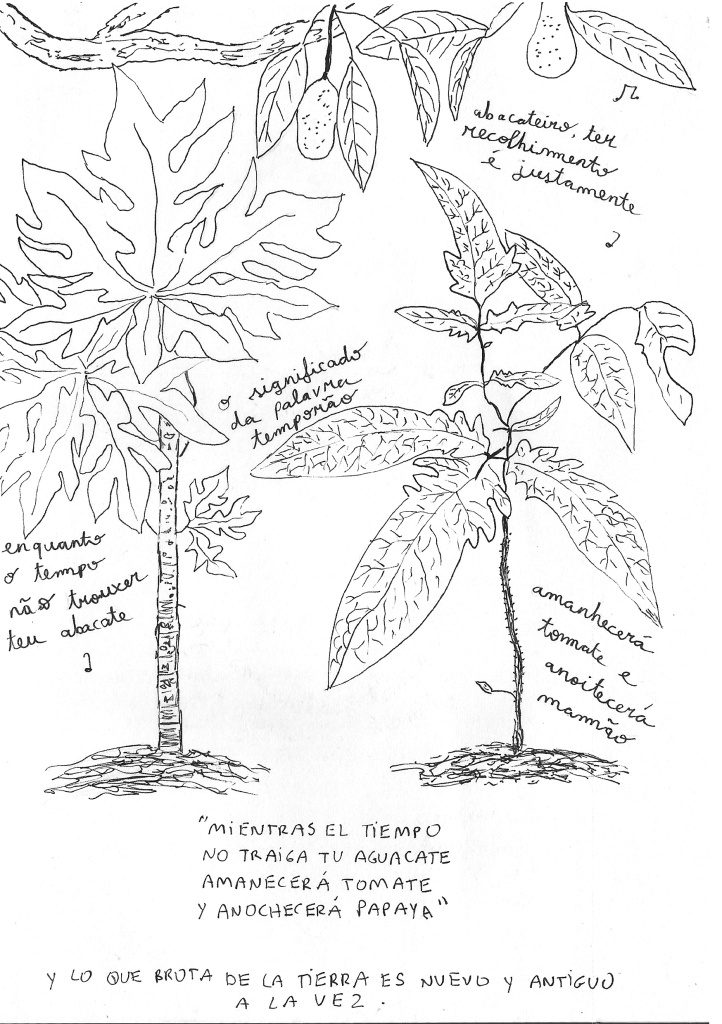 abacateiro, ter
recolhimento
é justamente
o significado
da palavra
temporão
enquanto
o tempo
não trouxer
teu abacate
amanhecerá
tomate e
anoitecerá
mamão
"MIENTRAS EL TIEMPO
NO TRAIGA TU AGUACATE
AMANECERÁ TOMATE
Y ANOCHECERÁ PAPAYA"
Y LO QUE BROTA DE LA TIERRA ES NUEVO Y ANTIGUO
A LA VEZ.